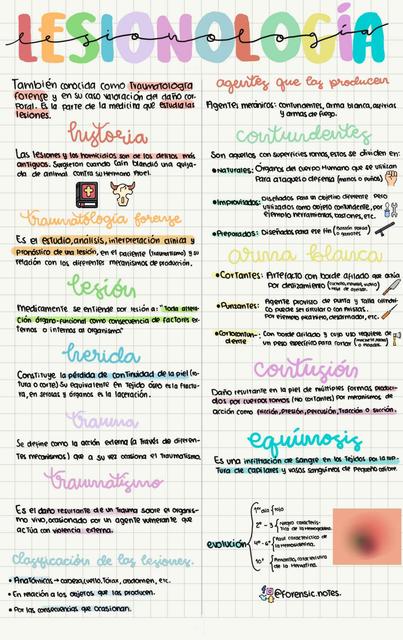 LESIONOLOGÍA
lesionología
También conocida como Traumatología
forense y en su caso valoración del daño cor-
poral. Es la parte de la medicina que estudia las
lesiones.
historia
Las lesiones y los homicidios son de los delitos más
antiguos. Surgieron cuando Caín blandió una quija-
da de animal contra su hermano Abel.
traumatología forense
Es el estudio, análisis, interpretación clínica y
pronóstico de una lesión, en el paciente (traumatismo) y su
relación con los diferentes mecanismos de producción.
lesión
Medicamente se entiende por lesión a: "Toda altera-
ción órgano-funcional como consecuencia de factores ex-
ternos o internos al organismo"
herida
Constituye la pérdida de continuidad de la piel
Su equivalente en Tejido óseo es la fractu-
ra, en vísceras y órganos es la laceración.
trauma
Se define como la acción externa (a través de diferen-
tes mecanismos) que a su vez ocasiona el traumatismo.
traumatismo
Es el daño resultante de un Trauma sobre el organis-
mo vivo, ocasionado por un agente vulnerante que
actúa con violencia externa.
Clasificación de las lesiones.
• Anatómicas → cabeza, cuello, Tórax, abdomen, etc.
• En relación a los objetos que las producen.
• Por las consecuencias que ocasionan.
agentes que los producen
Agentes mecánicos: contundentes, arma blanca,
y armas de fuego.
contundentes
Son aquellos con superficies romas, estos se dividen en:
• Naturales: Órganos del cuerpo Humano que se utilizan
para ataque o defensa (manos o puños)
• Improvisados: Diseñados para un objetivo diferente pero
utilizados como objeto contundente, por
ejemplo herramientas, bastones, etc.
• Preparados: Diseñados para ese fin
arma blanca
• Cortantes: Artefacto con borde afilado que actúa
por deslizamiento
• Punzantes: Agente provisto de punta y Talla cilíndri-
ca puede ser circular o con aristas.
Por ejemplo picahielo, desarmador, etc.
• Cortocontun-
dente: Con borde afilado y cuyo uso requiere de
un peso específico para cortar
contusión
Daño resultante en la piel de múltiples formas produci-
do por cuerpos romos (no cortantes) por mecanismos de
acción como fricción, presión, percusión, tracción o succión.
equimosis
Es una infiltración de sangre en los Tejidos por la rup-
Tura de capilares y vasos sanguíneos de pequeño calibre.
evolución
1er día rojo
2º - 3 Negro caracterís-
tica de la Hemoglobina.
4º - 6º Azul característico de
la Hemosiderina.
10º Amarillo, característico
de la Hematina.
@forensic.notes.